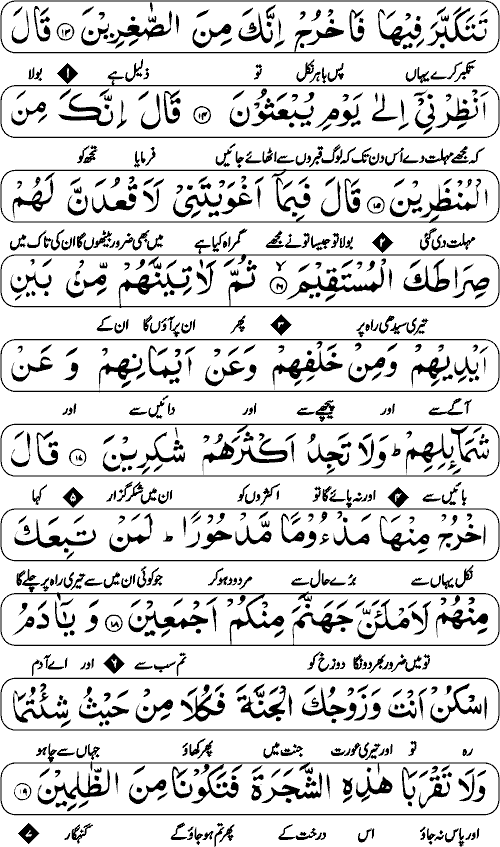 تَتَكَبَّرَ فِيْهَا فَاخْرُجْ اِنَّكَ مِنَ الصّٰغِرِيْنَ ﴿۱۳﴾ قَالَ
تکبر کرے یہاں پس باہر نکل تو ذلیل ہے ۱ بولا
اَنْظِرْنِيْٓ اِلٰى يَوْمِ يُبْعَثُوْنَ ﴿۱۴﴾ قَالَ اِنَّكَ مِنَ
کہ مجھے مہلت دے اُس دن تک کہ لوگ قبروں سے اٹھائے جائیں فرمایا تجھ کو
الْمُنْظَرِيْنَ ﴿۱۵﴾ قَالَ فَبِمَآ اَغْوَيْتَنِيْ لَاَقْعُدَنَّ لَهُمْ
مہلت دی گئی ۲ بولا تو جیسا تو نے مجھے گمراہ کیا ہے میں بھی ضرور بیٹھوں گا ان کی تاک میں
صِرَاطَكَ الْمُسْتَقِيْمَ ﴿۱۶﴾ ثُمَّ لَاٰتِيَنَّهُمْ مِّنْۢ بَيْنِ
تیری سیدھی راہ پر ۳ پھر ان پر آؤں گا ان کے
اَيْدِيْهِمْ وَمِنْ خَلْفِهِمْ وَعَنْ اَيْمَانِهِمْ وَعَنْ
آگے سے اور پیچھے سے اور دائیں سے اور
شَمَآئِلِهِمْ ؕ وَلَا تَجِدُ اَكْثَرَهُمْ شٰكِرِيْنَ ﴿۱۷﴾ قَالَ
بائیں سے ۴ اور نہ پائے گا تو اکثروں کو ان میں شکر گزار ۵ کہا
اخْرُجْ مِنْهَا مَذْءُوْمًا مَّدْحُوْرًا ؕ لَمَنْ تَبِعَكَ
نکل یہاں سے بُرے حال سے مردود ہو کر جو کوئی ان میں سے تیری راہ پر چلے گا
مِنْهُمْ لَاَمْلَئَنَّ جَهَنَّمَ مِنْكُمْ اَجْمَعِيْنَ ﴿۱۸﴾ وَيٰٓاٰدَمُ
تو میں ضرور بھر دونگا دوزخ کو تم سب سے ۶ اور اے آدم
اسْكُنْ اَنْتَ وَزَوْجُكَ الْجَنَّةَ فَكُلَا مِنْ حَيْثُ شِئْتُمَا
رہ تو اور تیری عورت جنت میں پھر کھاؤ جہاں سے چاہو
وَلَا تَقْرَبَا هٰذِهِ الشَّجَرَةَ فَتَكُوْنَا مِنَ الظّٰلِمِيْنَ ﴿۱۹﴾
اور پاس نہ جاؤ اس درخت کے پھر تم ہو جاؤ گے گنہگار ۷